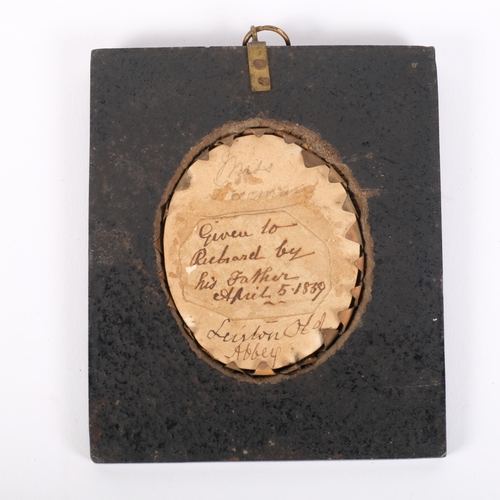 Miss
Given to
Richard by
his Father
April 5. 1839
Leiston Old
Abbey